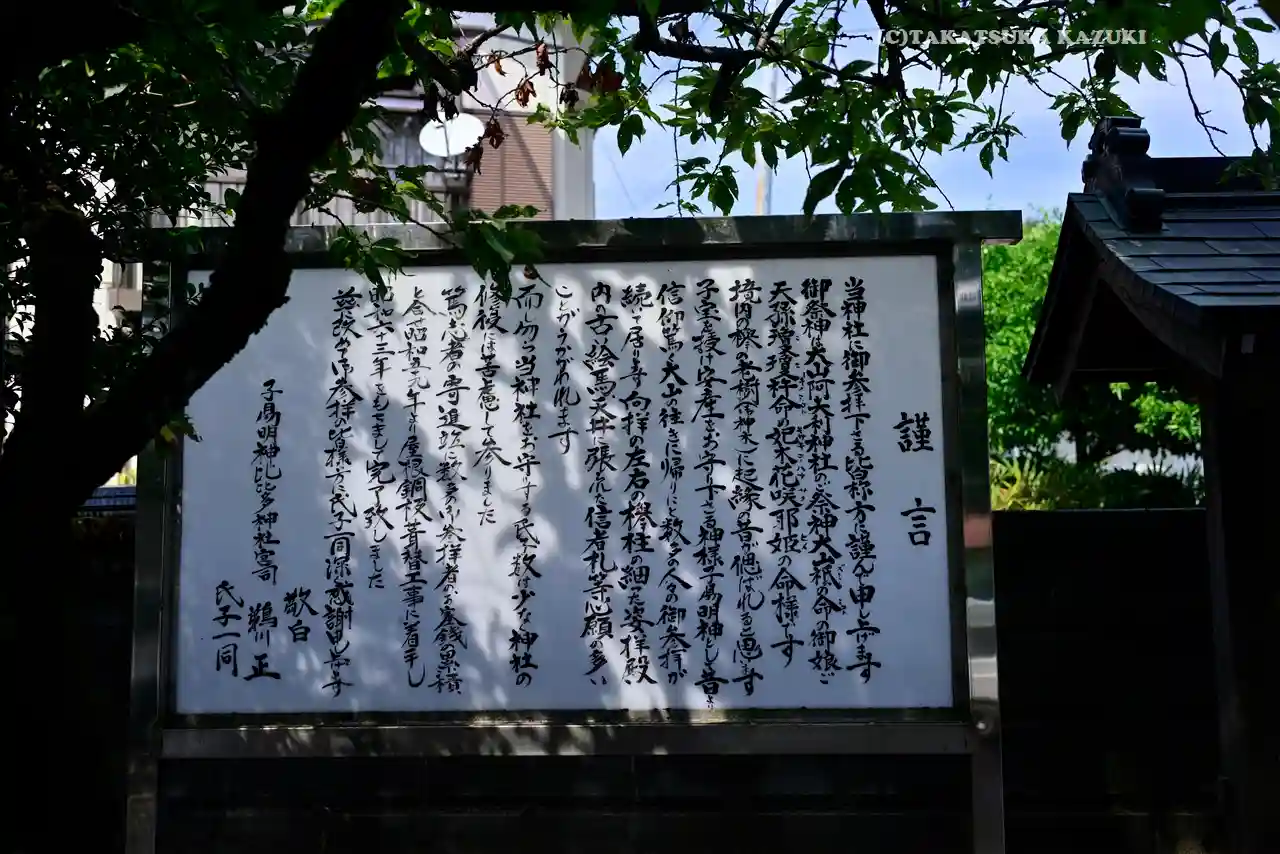 (C)TAKATSUKA KAZUKI
謹言
当神社に御参拝下さる皆様方に謹んで申し上げます
御祭神は大山阿夫利神社のご祭神大山祇の命の御娘ご
天孫瓊瓊杵命の妃木花咲耶姫の命様です
境内の欅の老樹(御神木)に起縁の昔が偲ばれると思います
子宝を授け安産をお守り下さる神様子易明神として昔より
信仰篤く大山の往きに帰りにと数多の人々の御参拝が
続いて居ります向拝の左右の欅柱の細った姿拝殿
内の古い絵馬天井に張られた信者札等心願の多い
ことがうかがわれます
而し乍ら当神社をお守りする氏子数は少なく神社の
修復には苦慮して参りました
篤志者の寄進並に数多の参拝者のお賽銭の累積
と合せ昭和五九年より屋根銅板葺替工事に着手し
昭和六三年をもちまして完了致しました
茲に改めて御参拝の皆様方に氏子一同深く感謝申し上げます
敬白
子易明神比比多神社宮司 鵜川正
氏子一同